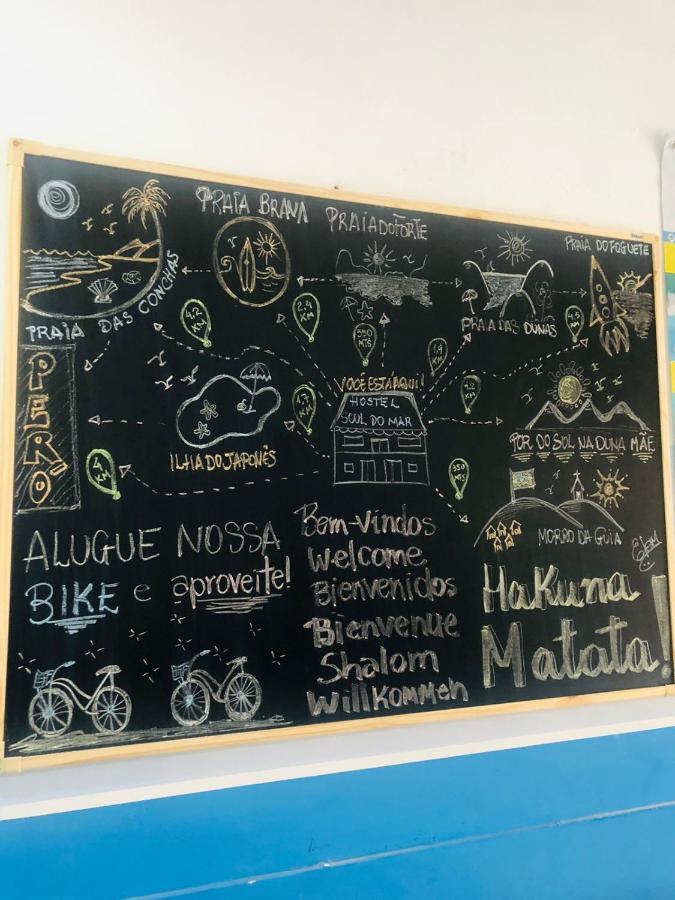 PRAIA BRAVA
PRAIA DO FORTE
PRAIA DO FOGUETE
PRAIA DAS CONCHAS
PRAIA DAS DUNAS
4,2
KM
2,4
KM
550
MTS
1,9
KM
4,5
KM
PERÓ
VOCÊ ESTÁ AQUI!
HOSTEL
SOUL DO MAR
KM
KM
ILHA DO JAPONÊS
POR DO SOL NA DUNA MÃE
4
KM
350
MTS
MORRO DA GUIA
ALUGUE NOSSA
BIKE e aproveite!
Bem-vindos
Welcome
Bienvenidos
Bienvenue
Shalom
Willkommen
Hakuna
Matata!